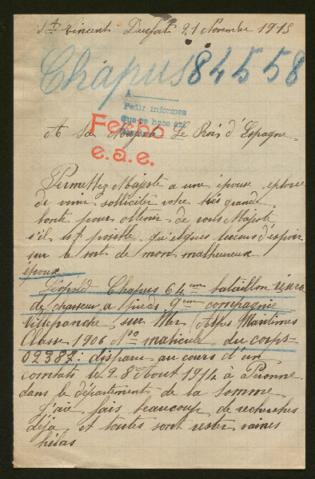 St Vincent 21 Novembre 1915
Chapus 84558
A
Petir informes
Fecho
e.a.e.
A Sa Majesté Le Roi d'Espagne
Permettez Majesté a une épouse eplorée
de venir solliciter votre très grande
bonté pour obtenir de votre Majesté
s'il est possible quelques lueurs d'espoir
sur le sort de mon malheureux
époux
Léopold Chapus 64me bataillon
de chasseur a pieds 9me compagnie
Villefranche sur Mer (Alpes Maritimes
Classe 1906 No matricule du corps
02382: disparu au cours d'un
combats le 28 Aout 1914 à Péronne
dans le département de la Somme
j'ai fais beaucoup de recherches
déja et toutes sont restés vaines
hélas